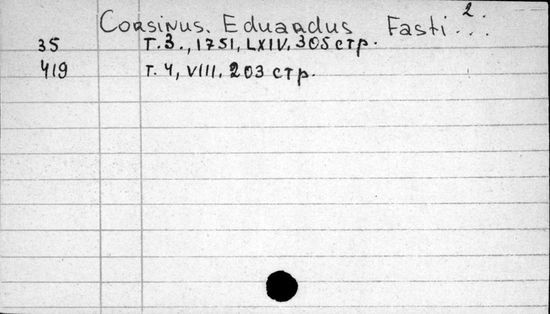 2.
Corsinus. Eduardus Fasti...
35 т. 3., 1751, LXIV. 305 стр.
419 т. 4, VIII. 203 стр.